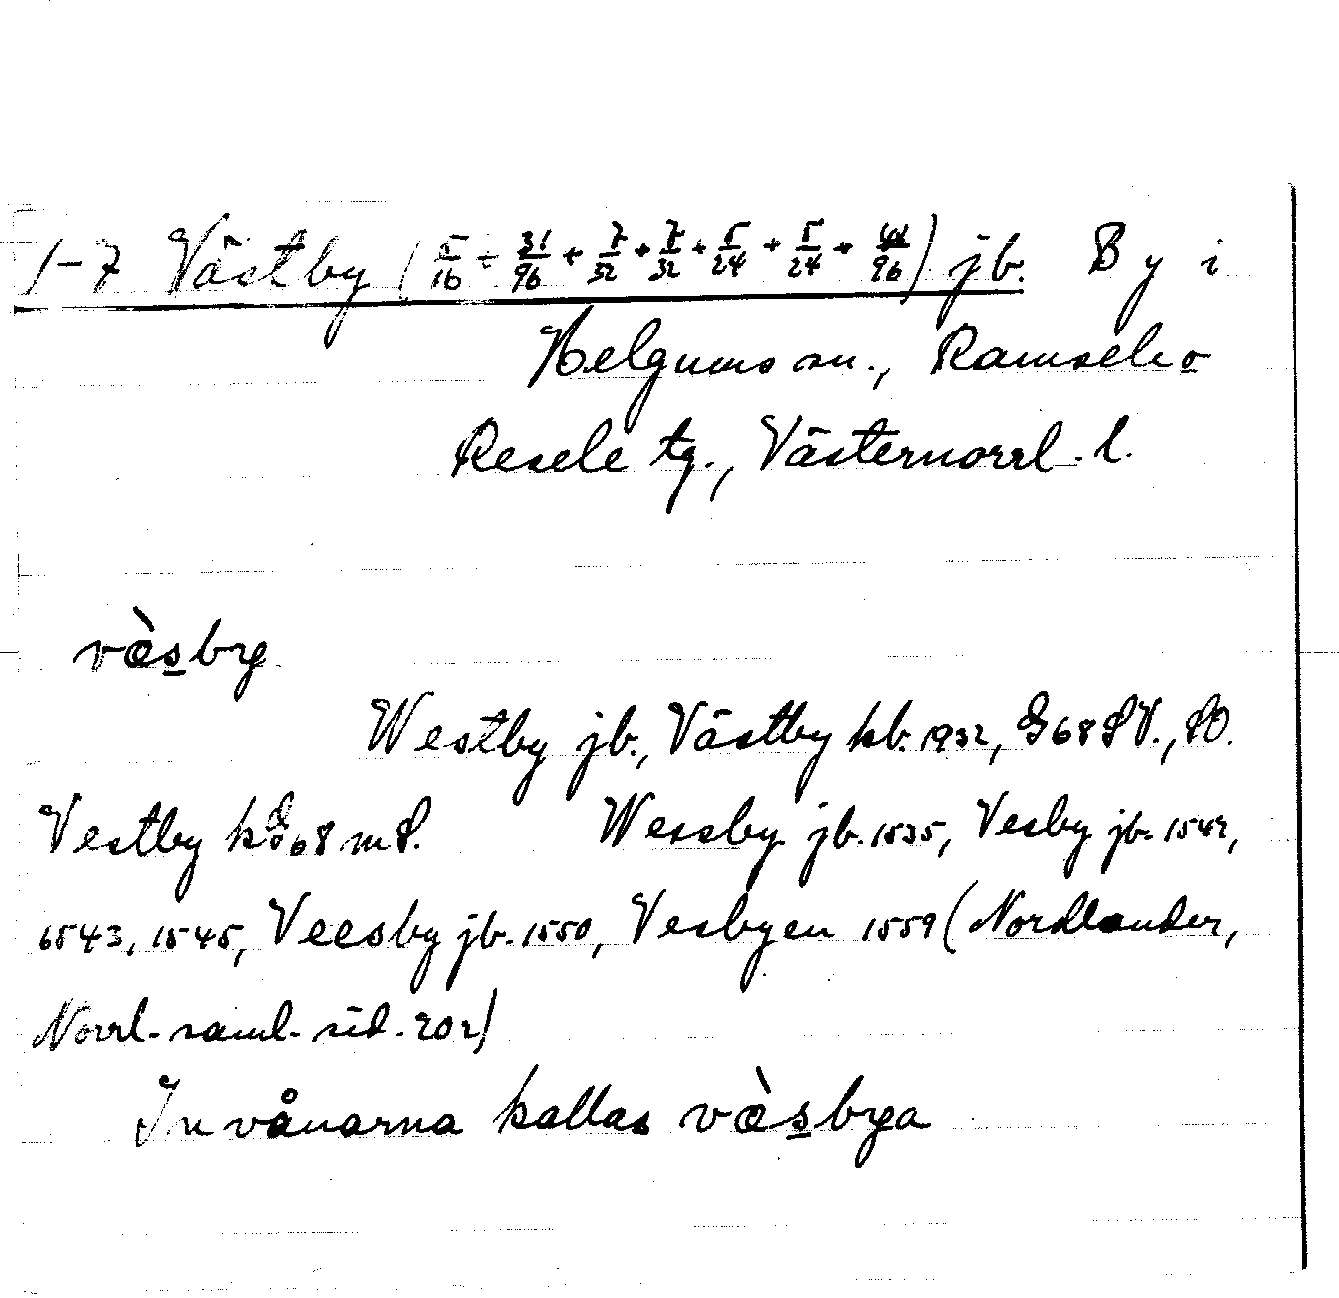 1-7 Västby (5/16 + 31/96 + 7/32 + 7/32 + 5/24 + 5/24 + 41/96) jb. By i
Helgums sn., Ramsele o
Resele tg., Västernorrl. l.
væ̀s̲by
Westby jb., Västby kb. 1932, G 68 SV., SO.
Vestby k G 68 m S. Wessby jb. 1535, Vesby jb. 1542,
1543, 1545, Veesby jb. 1550, Vesbyen 1559 (Nordlander,
Norrl. saml. sid. 202)
Invånarna kallas væ̀s̲bya